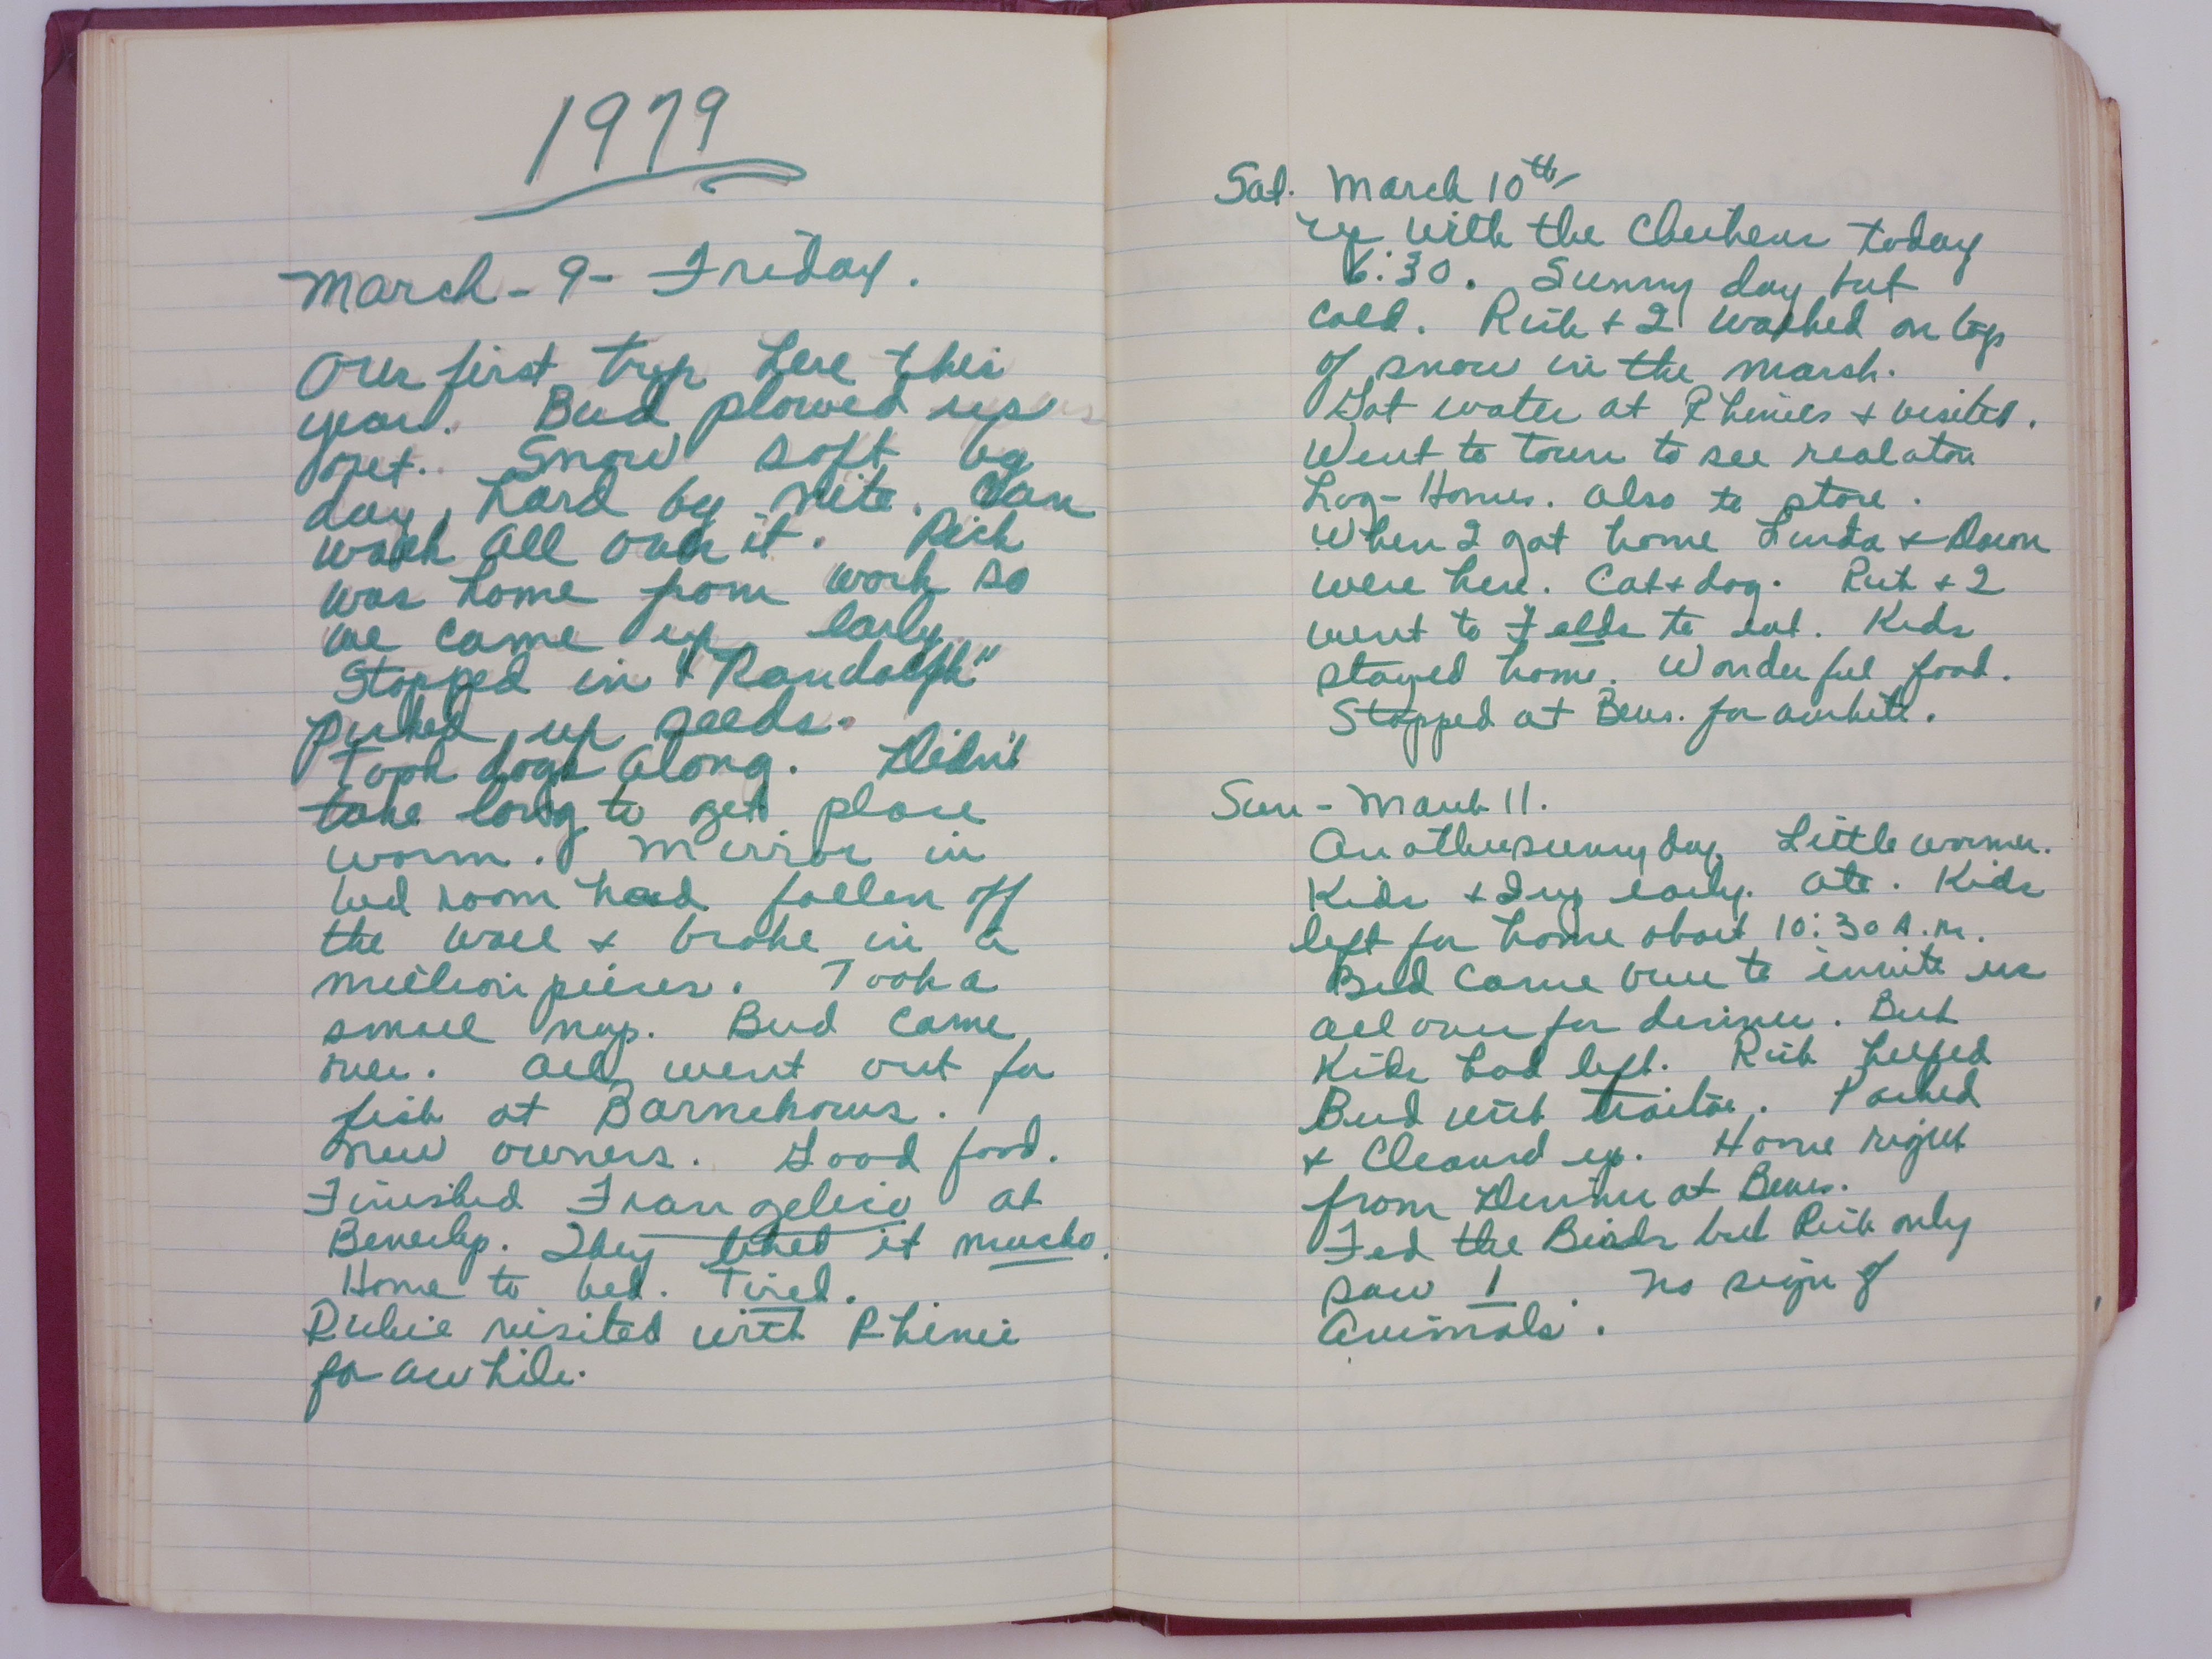 1979
March - 9 - Friday.
Our first trip here this
year. Bud plowed us
out. Snow soft by
day, hard by nite. Can
walk all over it. Rich
was home from work so
we came up early
Stopped in "Randolph"
picked up seeds.
Took dogs along. Didn't
take long to get place
warm. Mirror in
bed room had fallen off
the wall & broke in a
million pieces. Took a
small nap. Bud came
over. All went out for
fish at
new owners. Good food.
Finished Frangelico at
Beverly. They liked it mucho.
Home to bed. Tired.
visited with Rhinie
for awhile.
Sat. March 10th
up with the Chickens today
6:30. Sunny day but
cold. Rich & I walked on top
of snow in the marsh.
Got water at Rhinies & visited.
Went to town to see realator
Log-Homes. Also to store.
When I got home Linda & Dawn
were here. Cat & dog. Rich & I
went to Felds to eat. Kids
stayed home. Wonderful food.
Stopped at Bevs. for awhile.
Sun - March 11.
Another sunny day. Little warmer.
Kids & I up early. Ate. Kids
left for home about 10:30 A.M.
Bud came over to invite us
all over for dinner. But
Kids had left. Rich helped
Bud with trailer. Packed
& Cleaned up. Home right
from Dinner at Bevs.
Fed the Birds but Rich only
saw 1. No sign of
Animals.